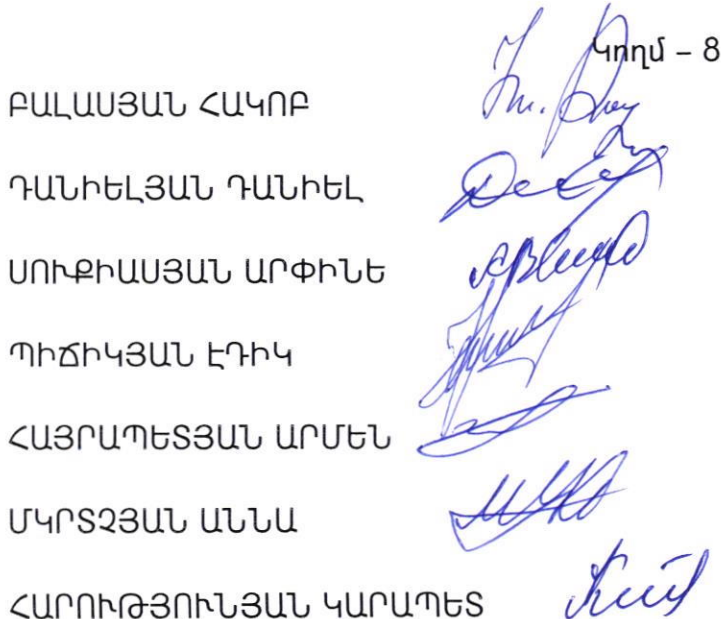 Կողմ – 8
ԲԱԼԱՍՅԱՆ ՀԱԿՈԲ
ԴԱՆԻԵԼՅԱՆ ԴԱՆԻԵԼ
ՍՈՒՔԻԱՍՅԱՆ ԱՐՓԻՆԵ
ՊԻՃԻԿՅԱՆ ԷԴԻԿ
ՀԱՅՐԱՊԵՏՅԱՆ ԱՐՄԵՆ
ՄԿՐՏՉՅԱՆ ԱՆՆԱ
ՀԱՐՈՒԹՅՈՒՆՅԱՆ ԿԱՐԱՊԵՏ